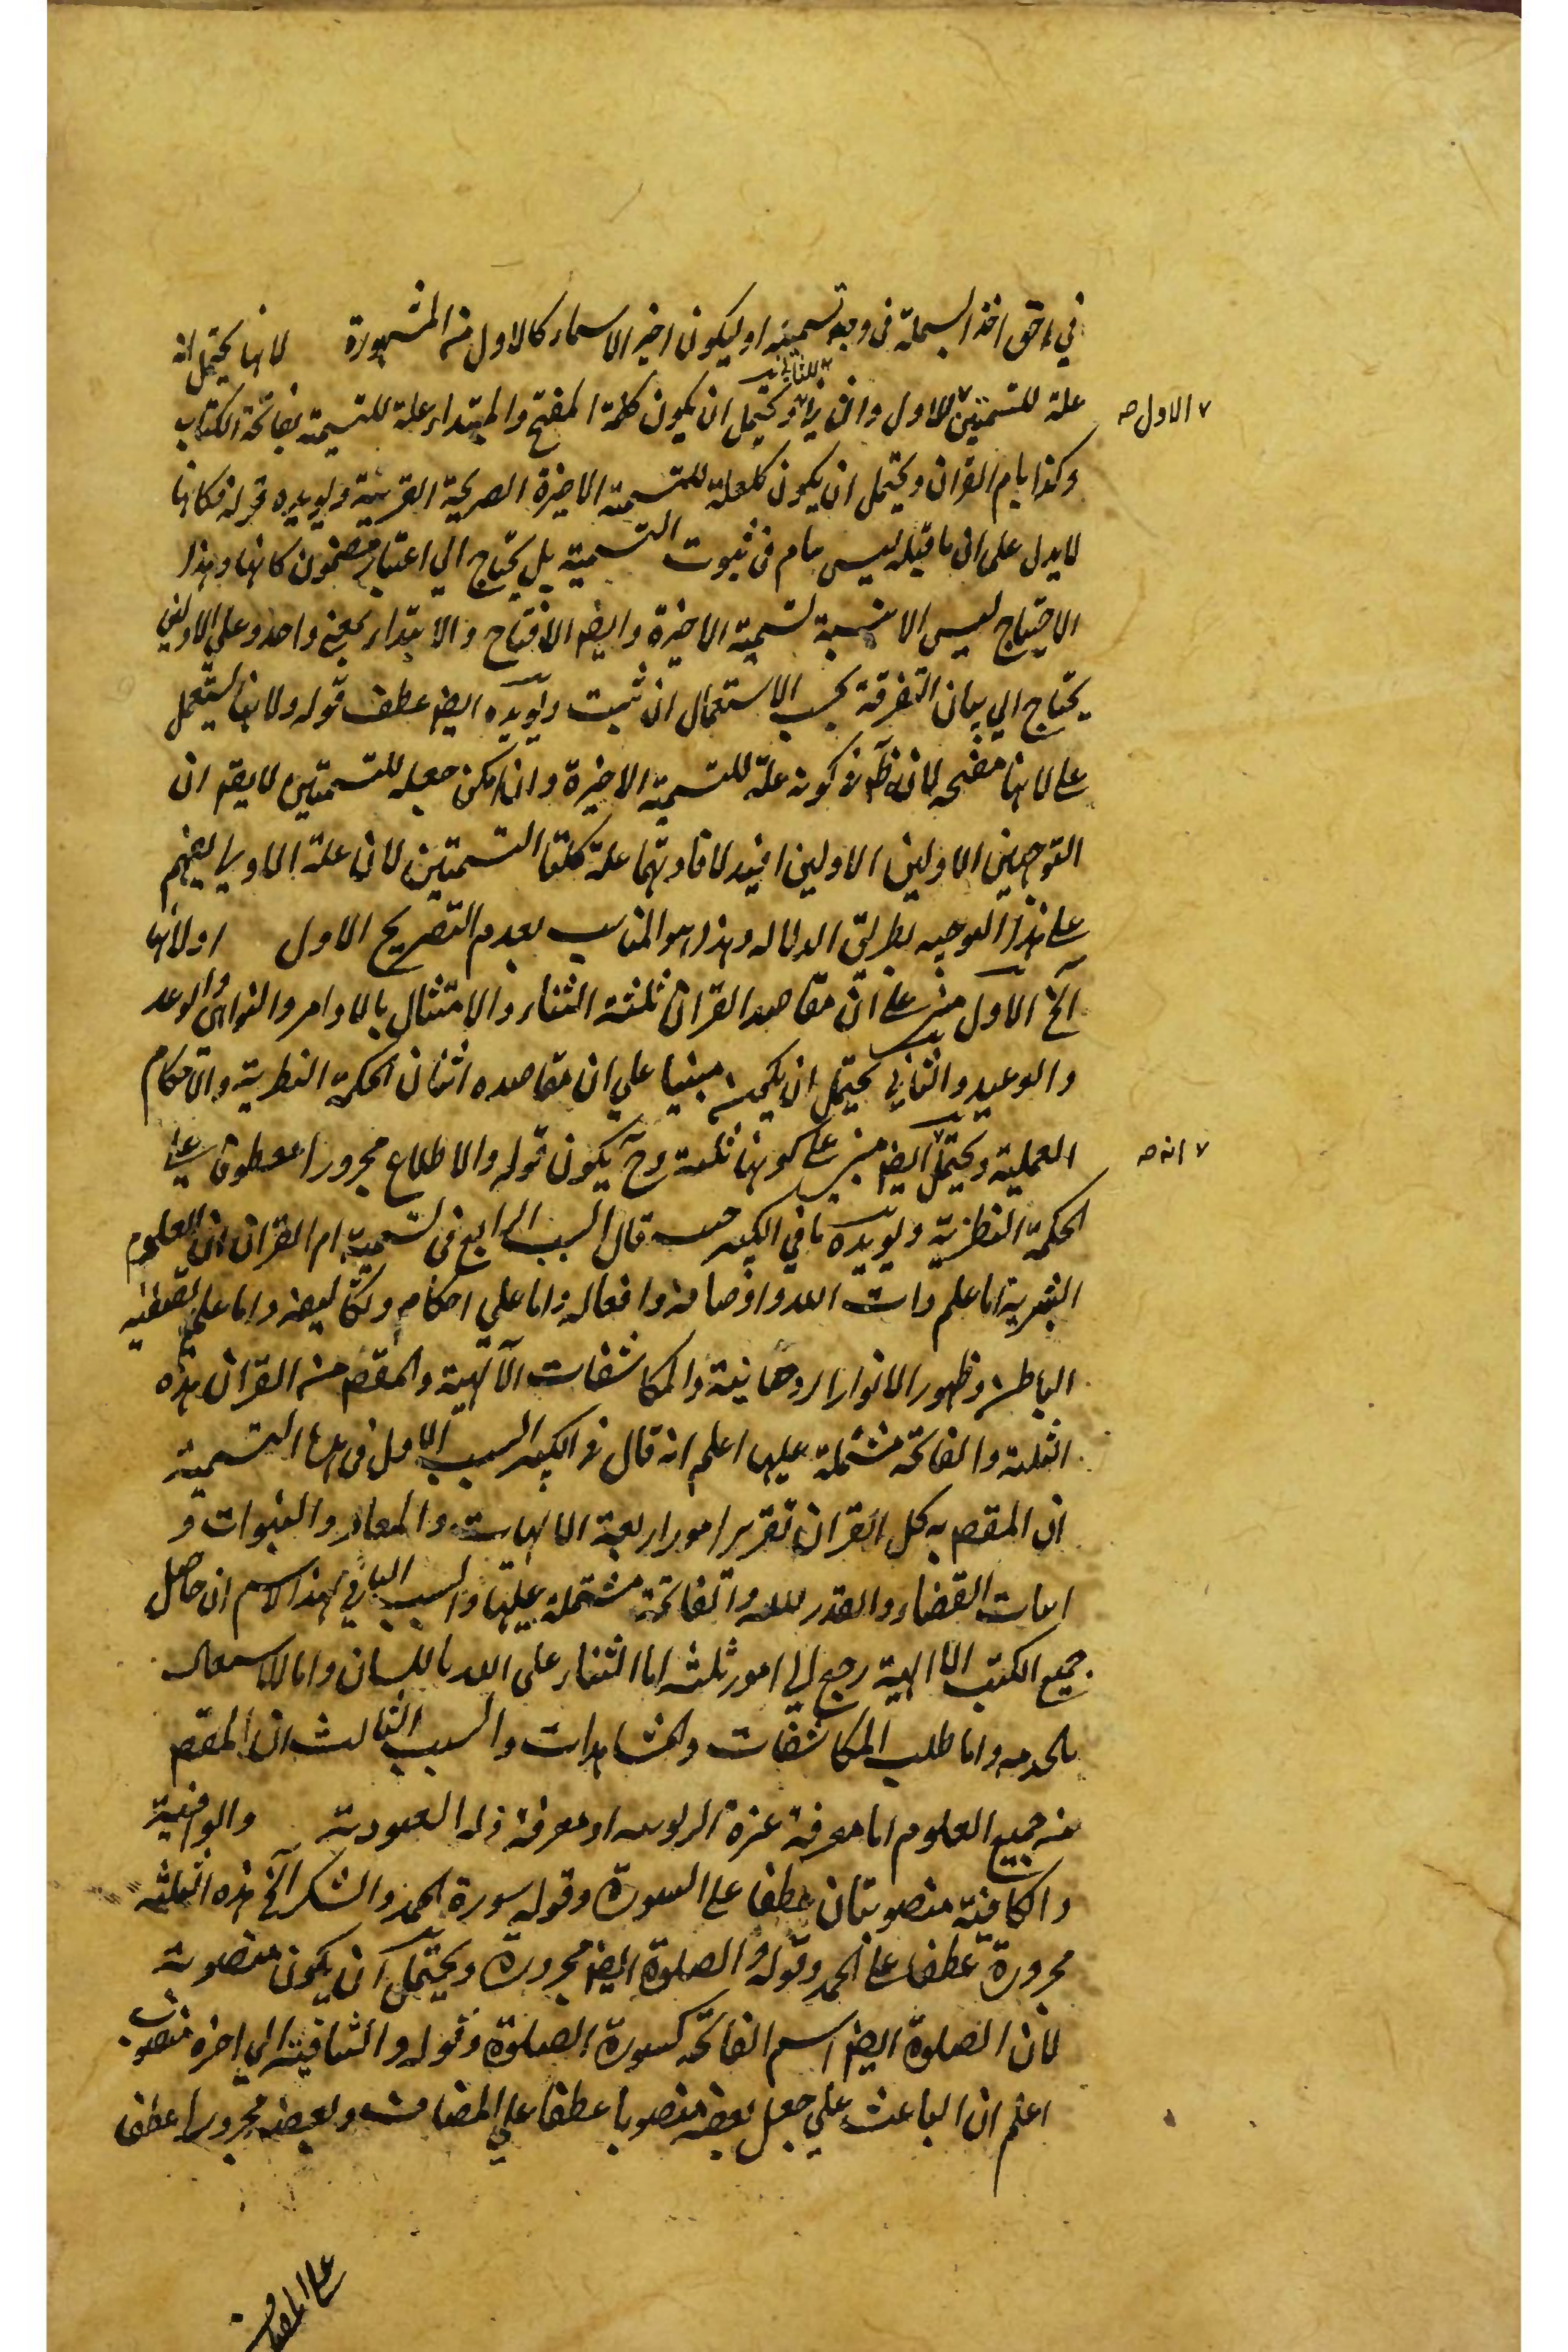 في احق اخذ البسملة في وجه تسميته او ليكون اخير الاسماء كالاول من المشهورة لانها يحتمل انه
علة للتسميتين للاول والثاني ويحتمل ان يكون كلمة المفتح والمبتداء علة للتسمية بفاتحة الكتاب
للثانية
٧ الاول صح
وكذا بام القران ويحتمل ان يكون كلعلة للتسمية الاخيرة الصريحة القريبة ويويده قوله فكانها
لا يدل على ان ما قبله ليس بتام في ثبوت التسمية بل يحتاج الي اعتبار مضمون كانها وهذا
الاحتياج ليس الا بنسبة تسمية الاخيرة وايضا الافتتاح والابتداء بمعنى واحد وعلي الاولين
يحتاج الي بيان التفرقة بحسب الاستعمال ان ثبت ويويده ايضا عطف قوله ولانها تشتمل
على لانها مفتتحه لانه ظ في كونه علة للتسمية الاخيرة وان امكن جعله للتسميتين لا يقم ان
التوجهين الاولين الاولين افيد لافادتهما علة كلتا التسميتين لان علة الاولي يفهم
على هذا التوجيه بطريق الدلاله وهذا هو المناسب بعدم التصريح الاول اولانها
الخ الاول مبني على ان مقاصد القران ثلثة الثناء والامتثال بالاوامر والنواهي والوعد
والوعيد والثاني يحتمل ان يكون مبنيا علي ان مقاصده اثنان الحكمة النظرية والاحكام
العملية ويحتمل ايضا مبني على كونها ثلثة وح يكون قوله والاطلاع مجرورا معطوفا على
٧ انه صح
الحكمة النظرية ويويده ما في الكبير حيث قال السبب الرابع في تسمية ام القران ان العلوم
البشرية اما علم ذات الله واوصافه وافعاله واما علي احكام وتكاليفه واما علم تصفية
الباطن وظهور الانوار الروحانية والمكاشفات الآلهية والمقصم من القران هذه
الثلثة والفاتحة مشتملة عليها اعلم انه قال في الكبير السبب الاول في هذا التسمية
ان المقصم به كل القران تقرير امور اربعة الالهيات والمعاد والنبوات و
اثبات القضاء والقدر لله والفاتحة مشتملة عليها والسبب الثاني لهذا الاسم ان حاصل
جميع الكتب الالهية رجع الي امور ثلثة اما الثناء على الله باللسان واما الاشتغال
بالخدمه واما طلب المكاشفات والمشاهدات والسبب الثالث ان المقصم
من جميع العلوم اما معرفة عزة الربوبية او معرفة ذلة العبودية والوافية
والكافية منصوبتان عطفا على السورة وقوله سورة الحمد والشكر الخ هذه الثلثة
مجرورة عطفا على الحمد وقوله والصلوة ايضا مجرورة ويحتمل ان يكون منصوبة
لان الصلوة ايضا اسم الفاتحة كسورة الصلوة وقوله والشافية الي اخره منصوب
اعلم ان الباعث علي جعل بعضه منصوبا عطفا علي المضاف وبعضه مجرورا عطفا
على المضاف